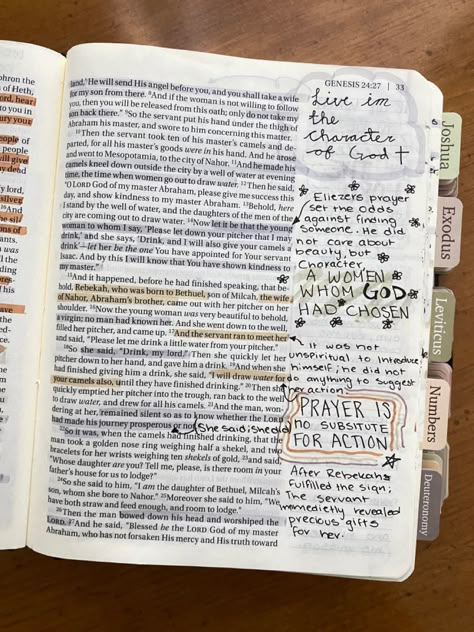 GENESIS 24:27 | 33
phron the
of Heth,
ord, hear
to you in
ury your
people of
will give
my dead
land,' He will send His angel before you, and you shall take a wife
for my son from there. 8And if the woman is not willing to follow
you, then you will be released from this oath; only do not take my
son back there." 9So the servant put his hand under the thigh of
Abraham his master, and swore to him concerning this matter.
10Then the servant took ten of his master's camels and de-
parted, for all his master's goods were in his hand. And he arose
and went to Mesopotamia, to the city of Nahor. 11And he made his
camels kneel down outside the city by a well of water at evening
time, the time when women go out to draw water. 12Then he said,
"O LORD God of my master Abraham, please give me success this
day, and show kindness to my master Abraham. 13Behold, here
I stand by the well of water, and the daughters of the men of the
city are coming out to draw water. 14Now let it be that the young
woman to whom I say, 'Please let down your pitcher that I may
drink,' and she says, 'Drink, and I will also give your camels a
drink'—let her be the one You have appointed for Your servant
Isaac. And by this I will know that You have shown kindness to
my master."
15And it happened, before he had finished speaking, that be-
hold, Rebekah, who was born to Bethuel, son of Milcah, the wife
of Nahor, Abraham's brother, came out with her pitcher on her
shoulder. 16Now the young woman was very beautiful to behold,
a virgin; no man had known her. And she went down to the well,
filled her pitcher, and came up. 17And the servant ran to meet her
and said, "Please let me drink a little water from your pitcher."
18So she said, "Drink, my lord." Then she quickly let her
pitcher down to her hand, and gave him a drink. 19And when she
had finished giving him a drink, she said, "I will draw water for
your camels also, until they have finished drinking." 20Then she
quickly emptied her pitcher into the trough, ran back to the well
to draw water, and drew for all his camels. 21And the man, won-
dering at her, remained silent so as to know whether the LORD
had made his journey prosperous or
She said/she did
22So it was, when the camels had finished drinking, that the
man took a golden nose ring weighing half a shekel, and two
bracelets for her wrists weighing ten shekels of gold, 23and said,
"Whose daughter are you? Tell me, please, is there room in your
father's house for us to lodge?"
24So she said to him, "I am the daughter of Bethuel, Milcah's
son, whom she bore to Nahor." 25Moreover she said to him, "We
have both straw and feed enough, and room to lodge."
26Then the man bowed down his head and worshiped the
LORD. 27And he said, "Blessed be the LORD God of my master
Abraham, who has not forsaken His mercy and His truth toward
Live in
the
character
of God
Eliezers prayer
set the odds
against finding
someone. He did
not care about
beauty, but
character
A WOMEN
WHOM GOD
HAD CHOSEN
It was not
unspiritual to introduce
himself; he did not
do anything to suggest
her action.
PRAYER IS
no SUBSTITUTE
FOR ACTION
After Rebeckahs
fulfilled the sign;
The servant
immedietly revealed
precious gifts
for her.
Joshua
Exodus
Leviticus
Numbers
Deuteronomy